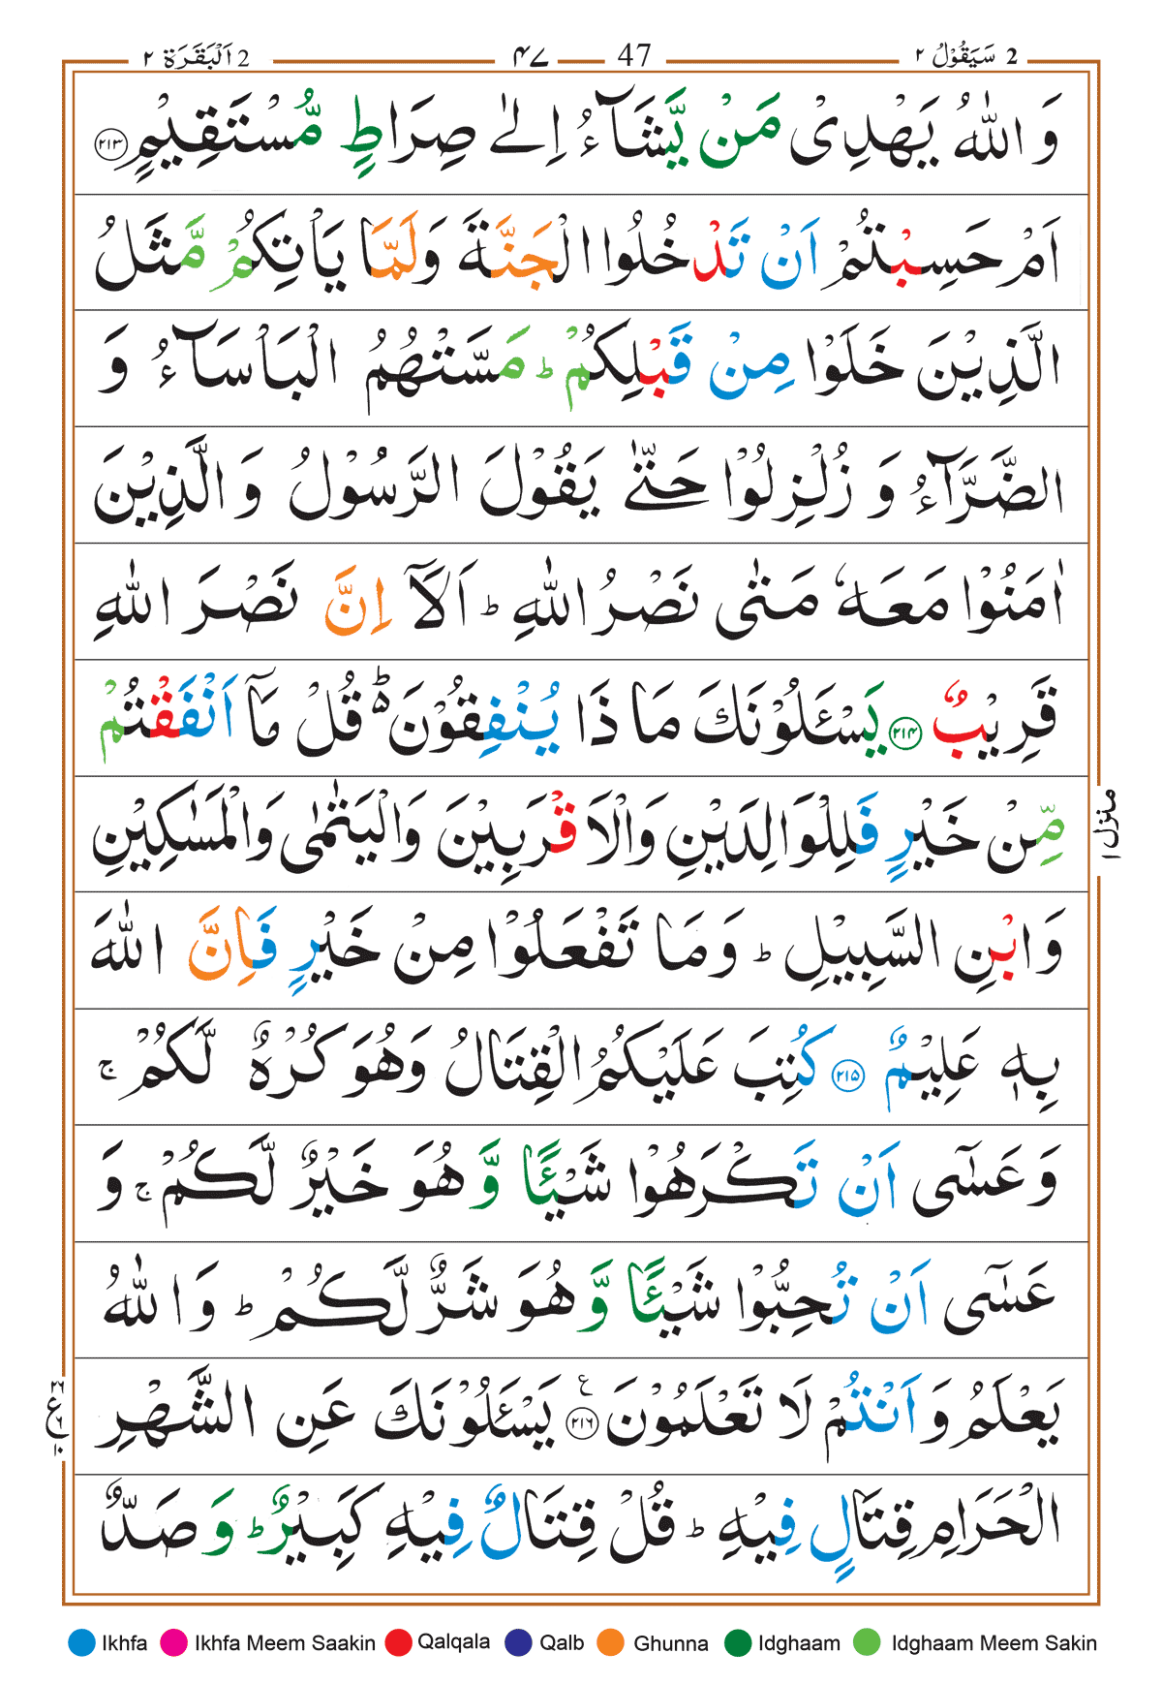 2 اَلْبَقَرَة ٢ ٤٧ 47 2 سَيَقُوْلُ ٢
وَ اللّٰهُ يَهْدِىْ مَنْ يَّشَآءُ اِلٰى صِرَاطٍ مُّسْتَقِيْمٍ ﴿٢١٣﴾
اَمْ حَسِبْتُمْ اَنْ تَدْخُلُوا الْجَنَّةَ وَلَمَّا يَاْتِكُمْ مَّثَلُ
الَّذِيْنَ خَلَوْا مِنْ قَبْلِكُمْ ؕ مَسَّتْهُمُ الْبَاْسَآءُ وَ
الضَّرَّآءُ وَ زُلْزِلُوْا حَتّٰى يَقُوْلَ الرَّسُوْلُ وَ الَّذِيْنَ
اٰمَنُوْا مَعَهٗ مَتٰى نَصْرُ اللّٰهِ ؕ اَلَآ اِنَّ نَصْرَ اللّٰهِ
قَرِيْبٌ ﴿٢١٤﴾ يَسْـَٔلُوْنَكَ مَا ذَا يُنْفِقُوْنَ ؕ قُلْ مَآ اَنْفَقْتُمْ
مِّنْ خَيْرٍ فَلِلْوَالِدَيْنِ وَالْاَقْرَبِيْنَ وَالْيَتٰمٰى وَالْمَسٰكِيْنِ
وَابْنِ السَّبِيْلِ ؕ وَمَا تَفْعَلُوْا مِنْ خَيْرٍ فَاِنَّ اللّٰهَ
بِهٖ عَلِيْمٌ ﴿٢١٥﴾ كُتِبَ عَلَيْكُمُ الْقِتَالُ وَهُوَ كُرْهٌ لَّكُمْ ۚ
وَعَسٰٓى اَنْ تَكْرَهُوْا شَيْـًٔا وَّهُوَ خَيْرٌ لَّكُمْ ۚ وَ
عَسٰٓى اَنْ تُحِبُّوْا شَيْـًٔا وَّهُوَ شَرٌّ لَّكُمْ ؕ وَ اللّٰهُ
يَعْلَمُ وَ اَنْتُمْ لَا تَعْلَمُوْنَ ﴿٢١٦﴾ يَسْـَٔلُوْنَكَ عَنِ الشَّهْرِ
الْحَرَامِ قِتَالٍ فِيْهِ ؕ قُلْ قِتَالٌ فِيْهِ كَبِيْرٌ ؕ وَ صَدٌّ
منزل ١
٢٦ ع ٦ ١٠
Ikhfa Ikhfa Meem Saakin Qalqala Qalb Ghunna Idghaam Idghaam Meem Sakin